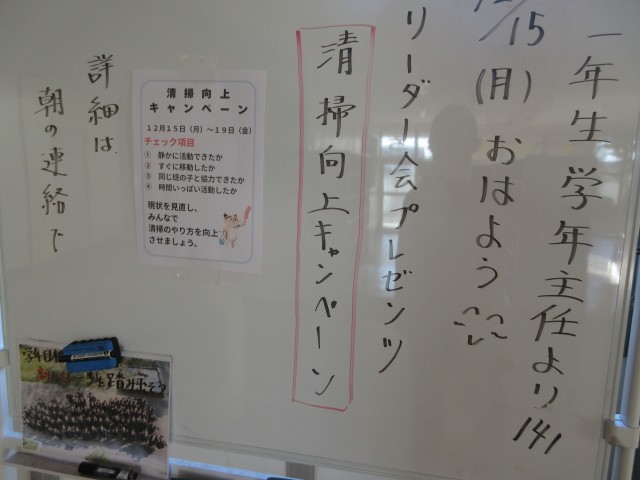 一年生 学年主任より 141
12/15(月)おはよう
リーダー会プレゼンツ
清掃向上キャンペーン
清掃向上
キャンペーン
12月15日(月)~19日(金)
チェック項目
① 静かに活動できたか
② すぐに移動したか
③ 同じ班の子と協力できたか
④ 時間いっぱい活動したか
現状を見直し、
みんなで
清掃のやり方を向上
させましょう。
詳細は
朝の連絡で
学年目標